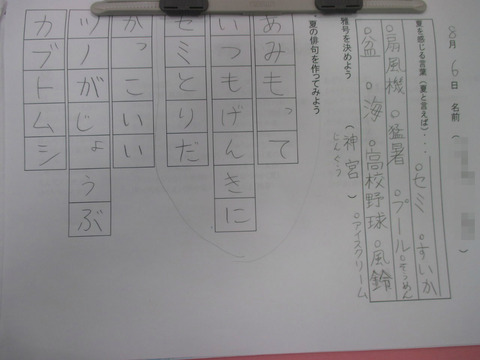 8月6日 名前（ ）
夏を感じる言葉（夏と言えば）・・・・ 。セミ 。すいか
。扇風機 。猛暑 。プール 。そうめん
。盆 。海 。高校野球 。風鈴
。アイスクリーム
雅号を決めよう （神宮）
じんぐう
夏の俳句を作ってみよう
あみもって
いつもげんきに
セミとりだ
かっこいい
ツノがじょうぶ
カブトムシ